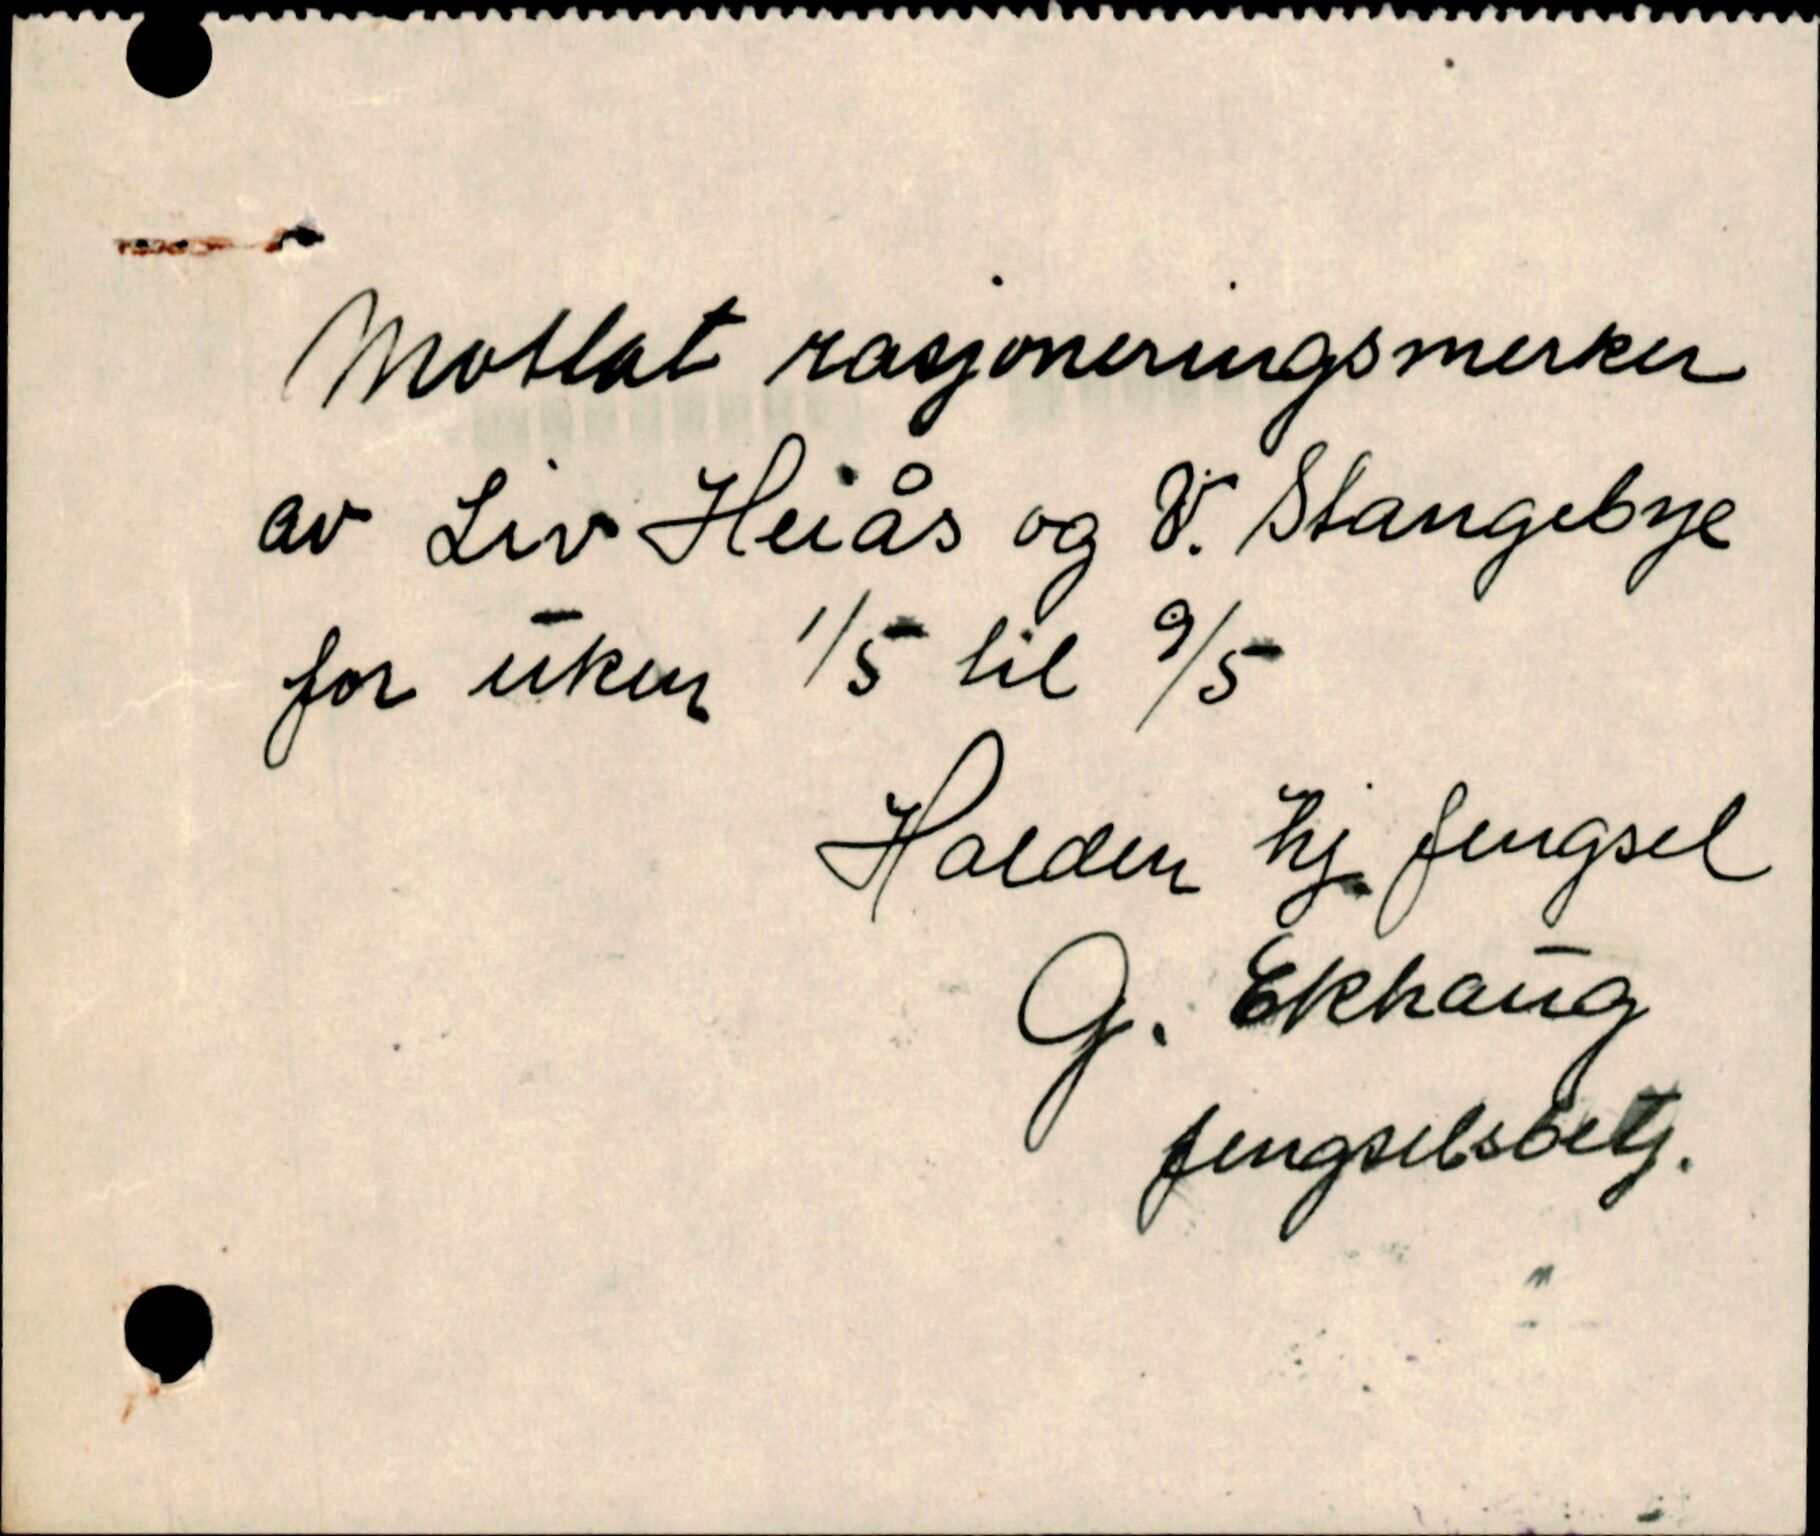 Mottat rasjoneringsmerker
av Liv Heiås og V. Stangebye
for uken 1/5 til 9/5
Halden hj. fengsel
G. Ekhaug
fengselsbetj.